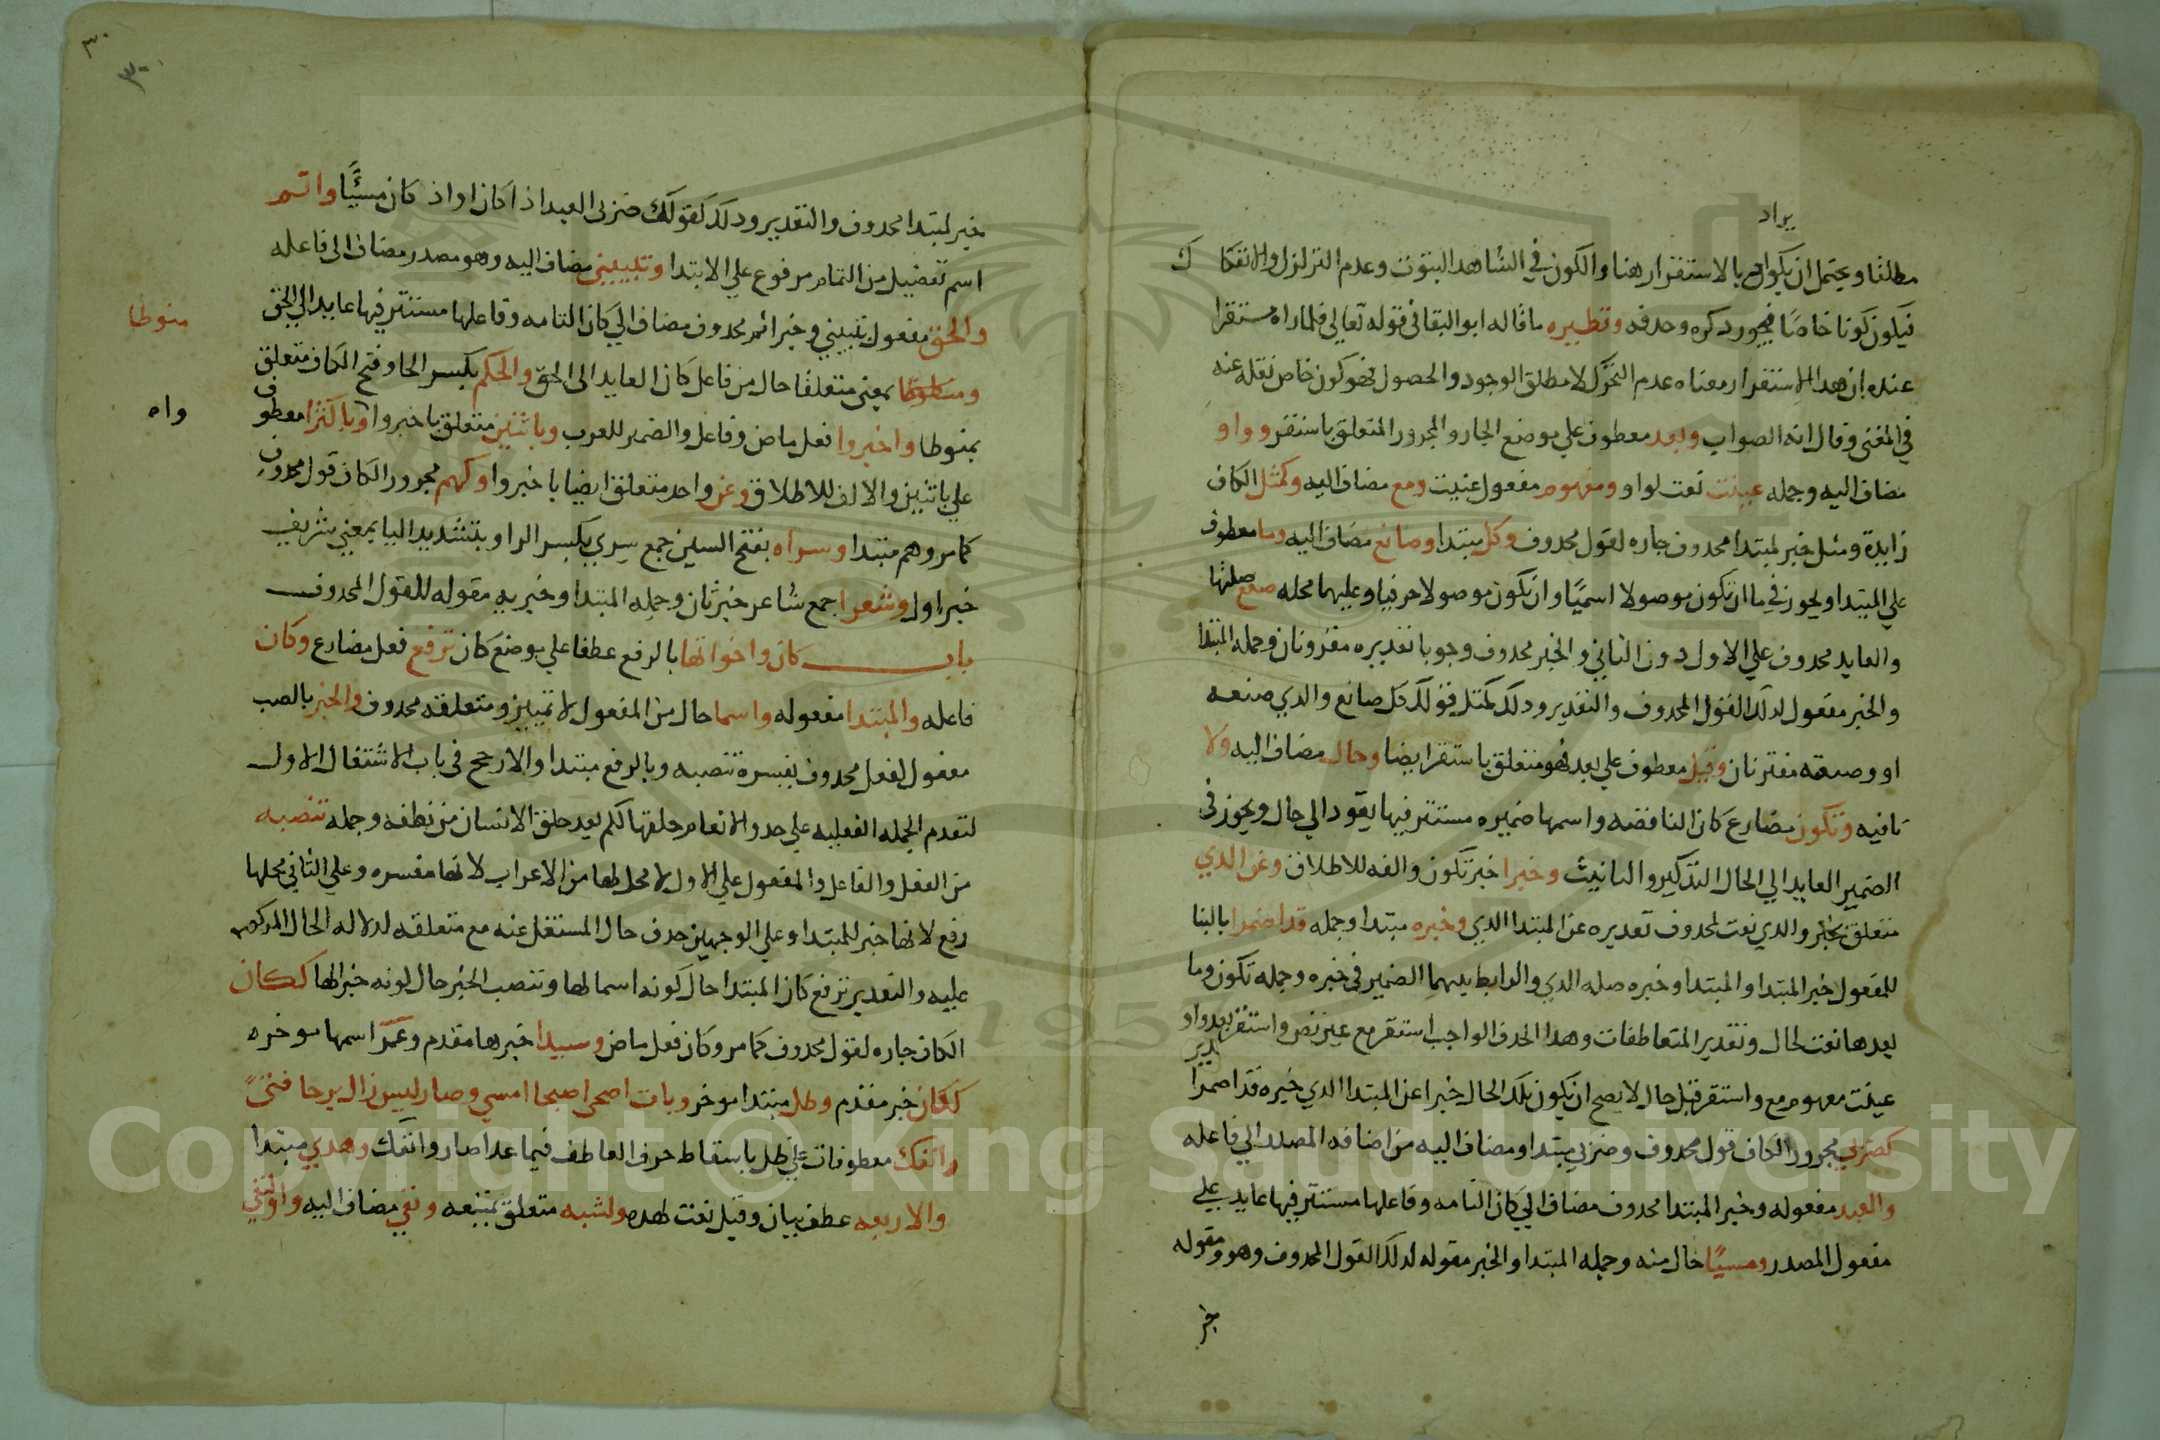 يراد
مطلقا ويحتمل ان يكون بالاستقرار هنا والكون في الشاهد الثبوت وعدم التزلزل والانفكاك
فيكون كونا خاصا فيجوز ذكره وحذفه ونظيره ما قاله ابو البقا في قوله تعالى فلما راه مستقرا
عنده ان هذا الاستقرار معناه عدم التحرك لا مطلق الوجود والحصول فهو كون خاص نقله عنه
في المغنى وقال انه الصواب وبعد معطوف علي موضع الجار والمجرور المتعلق باستقر وواو
مضاف اليه وجمله عينت نعت لواو ومفهوم مفعول عينت ومع مضاف اليه وكمثل الكاف
زايدة ومثل خبر لمبتدا محدوف جاره لقول محدوف وكل مبتدا وصانع مضاف اليه وما معطوف
علي المبتدا ويجوز في ما ان تكون موصولا اسميا وان تكون موصولا حرفيا وعليهما جمله صنع صلتها
والعايد محدوف علي الاول دون الثاني والخبر محدوف وجوبا تقديره مقرونان وجمله المبتدا
والخبر مفعول لدلك القول المحدوف والتقدير ودلك كمثل قولك كل صانع والدي صنعه
او وصنعه مقترنان وقبل معطوف علي بعد فهو متعلق باستقر ايضا وحال مضاف اليه ولا
نافيه وتكون مضارع كان الناقصه واسمها ضميره مستتر فيها يعود الي حال ويجوز في
الضمير العايد الي الحال التدكير والتانيث وخبرا خبر تكون والفه للاطلاق وعن الدي
متعلق بخبر والدي نعت لمحدوف تقديره عن المبتدا الدي وخبره مبتدا وجمله قد اضمرا بالبنا
للمفعول خبر المبتدا والمبتدا وخبره صله الدي والرابط بينهما الضمير في خبره وجمله تكون وما
بعدها نعت لحال وتقدير المتعاطفات وهدا الحدف الواجب استقر مع عين نص واستقر بعد واو
عينت مفهوم مع واستقر قبل حال لا يصح ان يكون تلك الحال خبرا عن المبتدا الدي خبره قد اضمرا
كضربي مجرور الكاف قول محدوف وضربي مبتدا ومضاف اليه من اضافه المصدر الي فاعله
والعبد مفعوله وخبر المبتدا محدوف مضاف الي كان التامه وفاعلها مستتر فيها عايد علي
مفعول المصدر ومسيئا حال منه وجمله المبتدا والخبر مقوله لدلك القول المحدوف وهو ومقوله
خبر
٣٠
٣٠
خبر لمبتدا محدوف والتقدير ودلك كقولك ضربي العبد اذا كان او اذ كان مسيئا واتم
اسم تفضيل من التمام مرفوع علي الابتدا وتبييني مضاف اليه وهو مصدر مضاف الى فاعله
والحق مفعول تبييني وخبر اتم محدوف مضاف الي كان التامه وفاعلها مستتر فيها عايد الي الحق
منوطا
ومنوطا بمعنى متعلقا حال من فاعل كان العايد الى الحق والحكم بكسر الحا وفتح الكاف متعلق
بمنوطا واخبروا فعل ماض وفاعل والضمير للعرب وباثنين متعلق باخبروا او باكثرا معطوف
واه
علي باثنين والالف للاطلاق وعن واحد متعلق ايضا باخبروا وكهم مجرور الكاف قول محدوف
كما مر وهم مبتدا وسراه بفتح السين جمع سري بكسر الرا وبتشديد اليا بمعنى شريف
خبر اول وشعرا جمع شاعر خبر ثان وجمله المبتدا وخبريه مقوله للقول المحدوف
باب كان واخواتها بالرفع عطفا علي موضع كان ترفع فعل مضارع وكان
فاعله والمبتدا مفعوله واسما حال من المفعول لا تمييز ومتعلقه محدوف والخبر بالنصب
مفعول لفعل محدوف يفسره تنصبه وبالرفع مبتدا والارجح في باب الاشتغال الاول
لتقدم الجمله الفعليه علي حد والانعام خلقها لكم بعد خلق الانسان من نطفه وجمله تنصبه
من الفعل والفاعل والمفعول علي الاول لا محل لها من الاعراب لانها مفسره وعلي الثاني محلها
رفع لانها خبر للمبتدا وعلي الوجهين حدف حال المستغل عنه مع متعلقه لدلاله الحال المدكور
عليه والتقدير ترفع كان المبتدا حال كونه اسما لها وتنصب الخبر حال كونه خبرا لها ككان
الكاف جاره لقول محدوف كما مر وكان فعل ماض وسيدا خبرها مقدم وعمر اسمها موخره
ككان خبر مقدم وظل مبتدا موخر وبات اضحى اصبحا امسي وصار ليس زال برحا فتئ
وانفك معطوفات علي ظل باسقاط حرف العاطف فيما عدا صار وانفك وهدي مبتدا
والاربعه عطف بيان وقيل نعت لهده ولشبه متعلق بمتبعه ونفي مضاف اليه واو لنفي
Copyright © King Saud University
1957